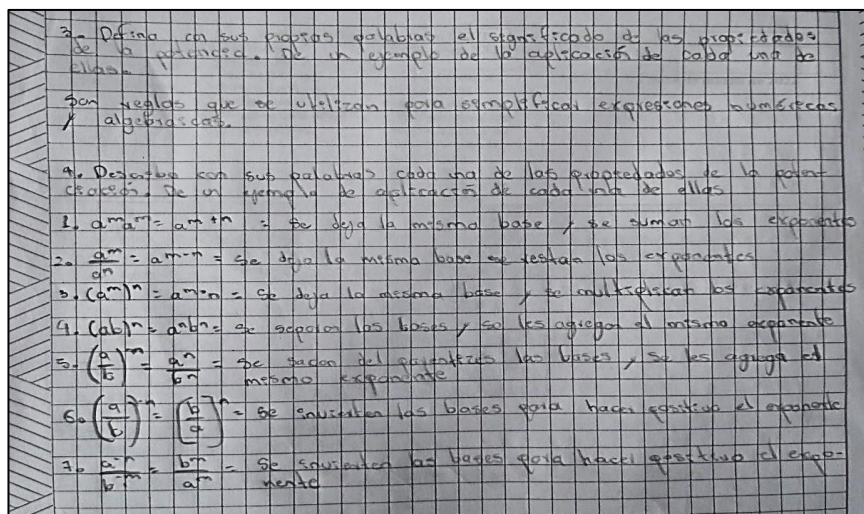 3.- Defina con sus propias palabras el significado de las propiedades
de la potencia. De un ejemplo de la aplicación de cada una de
ellas.
Son reglas que se utilizan para simplificar expresiones numéricas
y algebraicas.
4. Describa con sus palabras cada una de las propiedades de la poten-
ciación. De un ejemplo de aplicación de cada una de ellas
1. aᵐaᵐ = aᵐ⁺ⁿ = se deja la misma base y se suman los exponentes
2. aᵐ/aⁿ = aᵐ⁻ⁿ = se deja la misma base se restan los exponentes
3. (aᵐ)ⁿ = aᵐ·ⁿ = se deja la misma base y se multiplican los exponentes
4. (ab)ⁿ = aⁿbⁿ = se separan las bases y se les agrega el mismo exponente
5. (a/b)ⁿ = aⁿ/bⁿ = se sacan del parentezis las bases y se les agrega el
mesmo exponente
6. (a/b)⁻ⁿ = (b/a)ⁿ = se invierten las bases para hacer positivo el exponente
7. a⁻ⁿ/b⁻ᵐ = bᵐ/aⁿ = Se invierten las bases para hacer positivo el expo-
nente